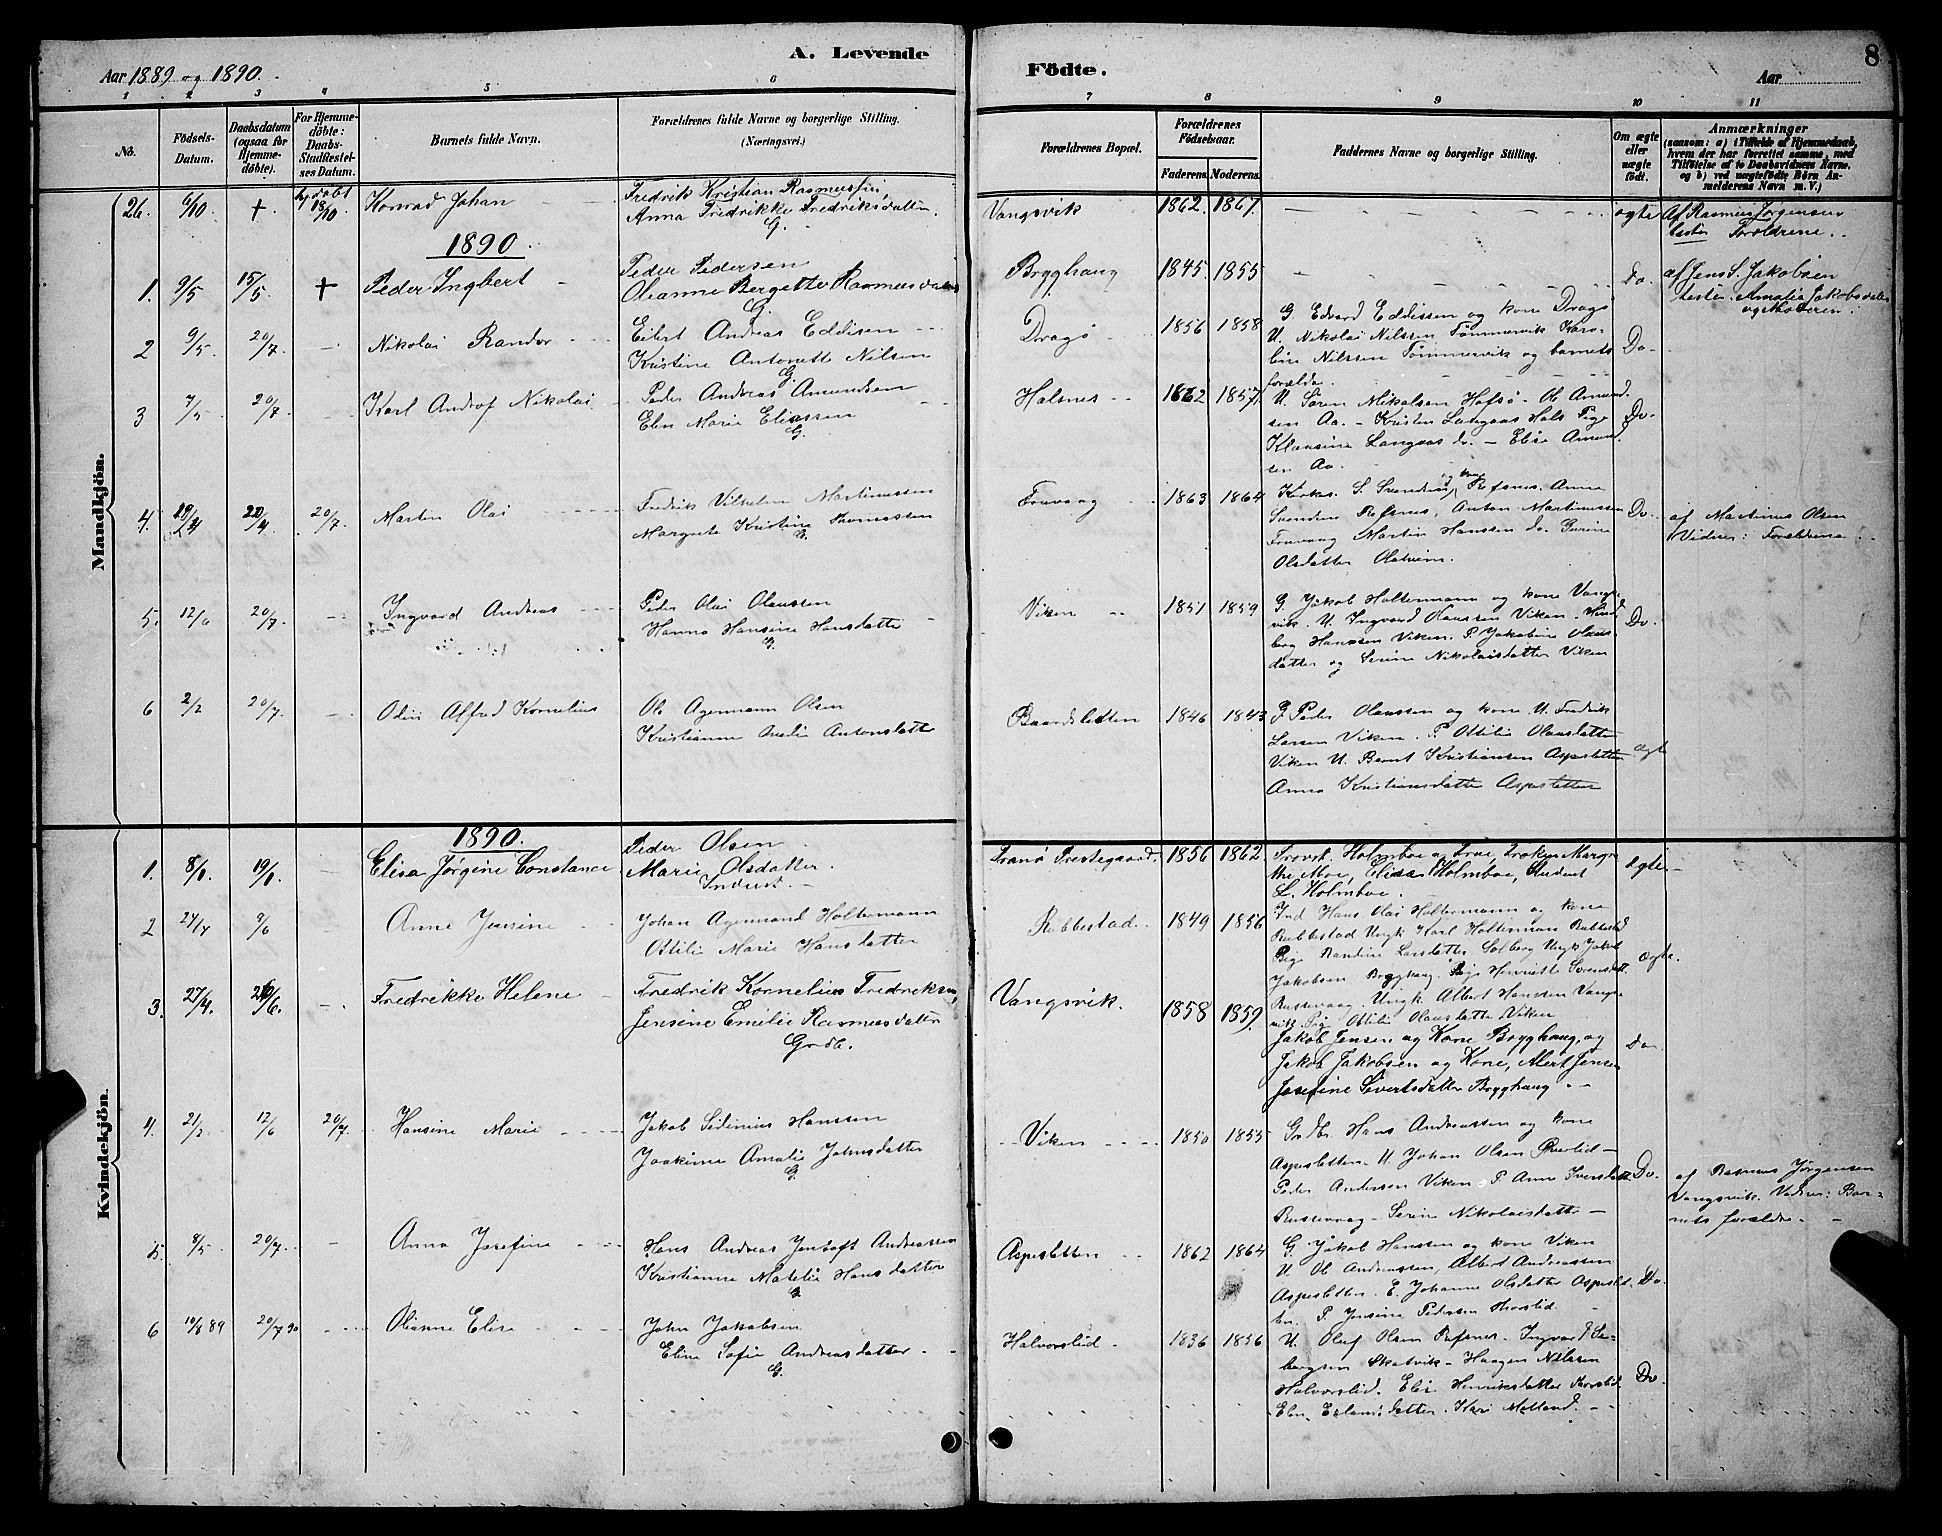 Aar 1889 og 1890.
A. Levende
Födte.
Aar
8
1 2 3 4 5 6 7 8 9 10 11
No.
Födsels-
Datum.
Daabsdatum
(ogsaa for
Hjemme-
döbte).
For Hjemme-
döbte:
Daabs-
Stadfæstel-
ses Datum.
Barnets fulde Navn.
Forældrenes fulde Navne og borgerlige Stilling.
(Næringsvei.)
Forældrenes Bopæl.
Forældrenes
Födselsaar.
Faderens. Moderens.
Faddernes Navne og borgerlige Stilling.
Om ægte
eller
uægte
födt.
Anmærkninger
(saasom: a) i Tilfælde af Hjemmedaab,
hvem der har forrettet samme, med
Tilföielse af to Daabsvidners Navne,
og b) ved uægtefödte Börn An-
melderens Navn m. V.)
Mandkjön.
26. 6/10 + hj döbt 13/10 Konrad Johan
Fredrik Kristian Rasmussen,
Anna Fredrikke Fredriksdatter
G.
Vangsvik 1862. 1867. ægte
Af Rasmus Jørgensen
testes Forældrene.
1890
1. 9/5 15/5 + Peder Ingbert
Peder Pedersen
Oleanne Bergette Rasmusdatter
G.
Brygghaug 1845. 1855 Do.
af Jens S. Jakobsen
tester. Amalia Jakobsdatter
og Moderen.
2 9/5 20/7 Nikolai Randor
Eilert Andreas Eddisen
Kristine Antonette Nilsen
G.
Dragø 1856 1858
G Edvard Eddissen og kone Dragø
U. Nikolai Nilssen Tømmervik Karo-
line Nilssen Tømmervik og barnets
forældre.
Do
3 7/5 20/7 Karl Androf Nikolai
Peder Andreas Amundsen
Elen Marie Eliassen
G.
Halsnes 1862 1857
U. Sören Mikalsen Hofsø - Ol Amund-
sen Aa. - Kristen Langaas Hals Pige
Klausine Langaas do. - Elise Amund-
sen Aa.
Do.
4. 20/7 Martin Olai
Fredrik Vilhelm Martinussen
Margrete Kristine Thomassen
G.
Fruvaag 1863 1864
Kirkes. S. Svendsen og kone Refsnes. Anne
Svendsen Refsnes, Anton Martinussen
Fruvaag Martin Hanssen do. Gurine
Olsdatter
Do.
af Martinus Olsen
Vidner: Forældrene.
5. 12/6 20/7 Ingvard Andreas
Peder Olai Olaussen
Hanna Hansine Hansdatter
G.
Viken 1851 1859
G. Jakob Holtermann og kone Vangs-
vik. U. Ingvard Olaussen Viken.
berg Hanssen Viken. P. Jakobine Olaus-
datter og Serine Nikolaisdatter Viken
Do.
6 2/2 20/7 Odin Alfred Kornelius
Ole Agermann Olsen
Kristianne Antonsdatter
Baardsletten 1846 1843
G. Peder Olaussen og kone U. Fredrik
Larsen Viken. P Ottilie Olausdatter
Viken U. Bernt Kristiansen Aspesletten
Anna Kristiansdatter Aspesletten
ægte
Kvindekjön.
1890.
1. 8/1 19/1 Elisa Jørgine Constance
Peder Olsen
Marie Olsdatter.
Inderst.
Tranø Præstegaard. 1856 1862.
Provst. Holmboe og Frue, Frøken Margre-
the Moe, Elisa Holmboe, Student
L. Holmboe.
ægte.
2 9/6 Anne Jensine
Johan Agermand Holtermann
Ottilie Marie Hansdatter
Rubbestad. 1849 1856
Ind Hans Olai Holtermann og kone
Rubbestad Ungk Karl Holterman Rubbestad
Pige Randine Larsdatter Solberg Ungk Jakob
Jakobsen Brygghaug. Pige Henriette Sörensdatt.
Russevaag. Ungk. Albert Hanssen Vangs-
vik. Pig. Ottilie Olausdatter Viken
ægte.
3. 27/4. Fredrikke Helene
Fredrik Kornelius Fredriksen,
Jensine Emilie Rasmusdatter
Grdb.
Vangsvik. 1858 1859.
Jakob Jensen og Kone Brygghaug, og
Jakob Jakobsen og Kone, Alert Jensen
Josefine Sivertsdatter Brygghaug
Do.
4. 21/2 12/6 20/7. Hansine Marie
Jakob Sedenius Hanssen
Joakime Amalie Johnsdatter
G.
Viken 1850 1855
Grdbr. Hans Andreassen og kone
Aspesletten. U Johan Olsen
Peder Andersen Viken P Anne Iversdatt.
Russevaag - Serine Nikolaisdatter
Do.
af Rasmus Jørgensen
Vangsvik. Vidner: Bar-
nets forældre.
5. 8/5 20/7. Anna Josefine
Hans Andreas Jentoft Andreassen
Kristianne Matelie Hansdatter
G.
Aspesletten 1862 1864
G. Jakob Hanssen og kone Viken
U. Ole Andreassen, Albert Andreassen
Aspesletten. E. Johanne Olsdatter Aspeslet-
ten. P. Jensine Pedersen
Do.
6 10/8 89 20/7 90 Olianne Elise
John Jakobsen
Eline Sofie Andreasdatter
G.
Halvorslid 1836 1856
U. Oluf Olsen Refsnes - Ingvard Se-
bergsen Skatvik - Haagen Nilssen
Halvorslid. Elise Henriksdatter
Elen Erlandsdatter. Kari
Do.